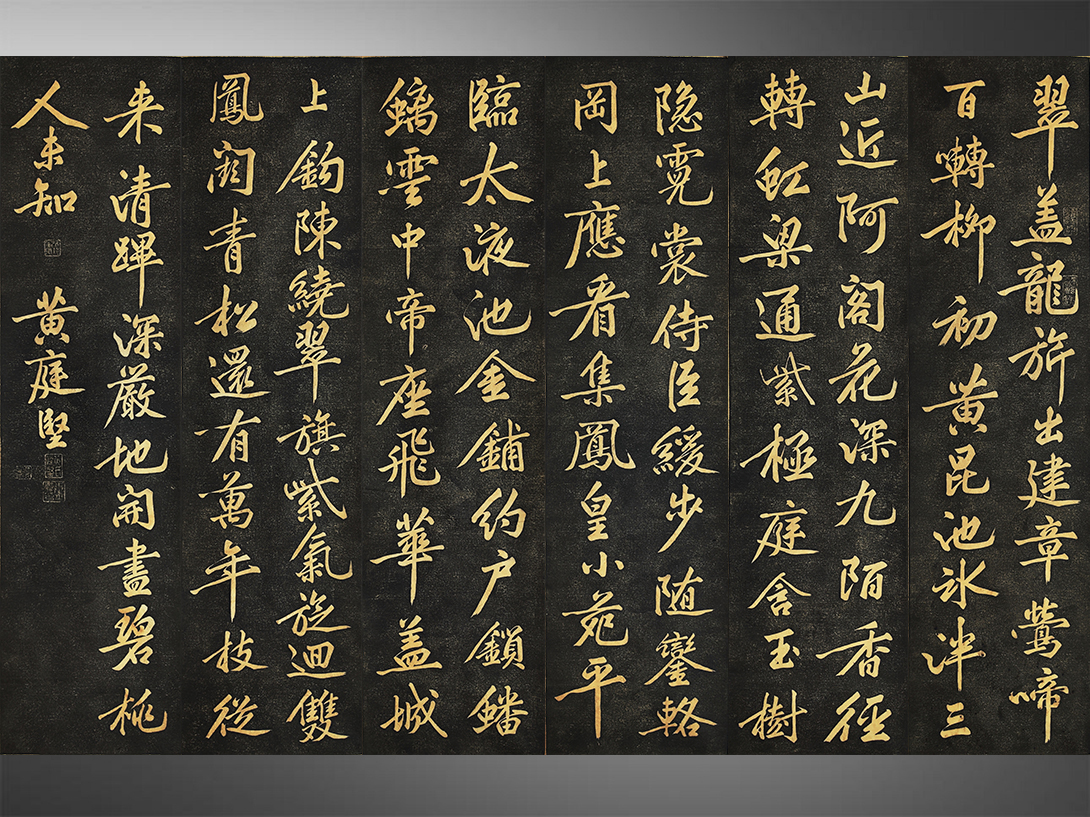 翠盖龍旂出建章鶯啼
百囀柳初黄昆池氷泮三
山近阿阁花深九陌香徑
轉虹梁通紫極庭含玉樹
隐霓裳侍臣緩步随鑾輅
岡上應看集鳳皇小苑平
臨太液池金鋪約户鎖蟠
螭雲中帝座飛華盖城
上鈎陳繞翠旗紫氣旋迴雙
鳳阁青松還有萬年枝從
来清蹕深嚴地開盡碧桃
人未知
黄庭堅